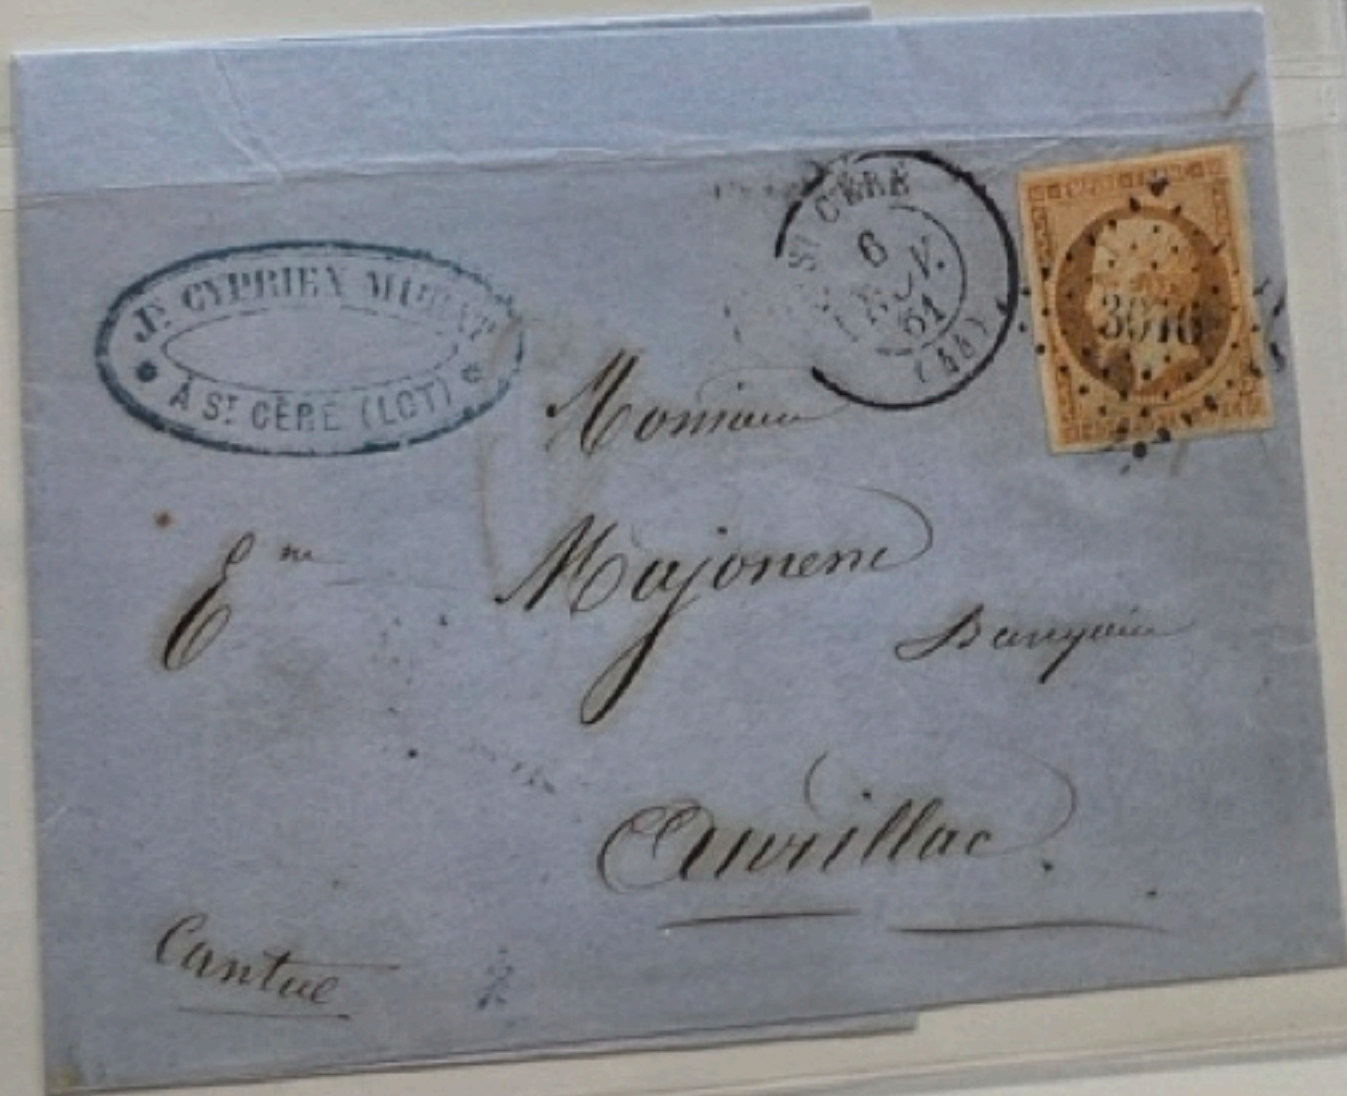 Jn CYPRIEN
À St CÉRÉ (LOT)
St CÉRÉ
6
NOV.
61
(44)
3016
Monsieur
Em Majonenc
Banquier
Aurillac
Cantal